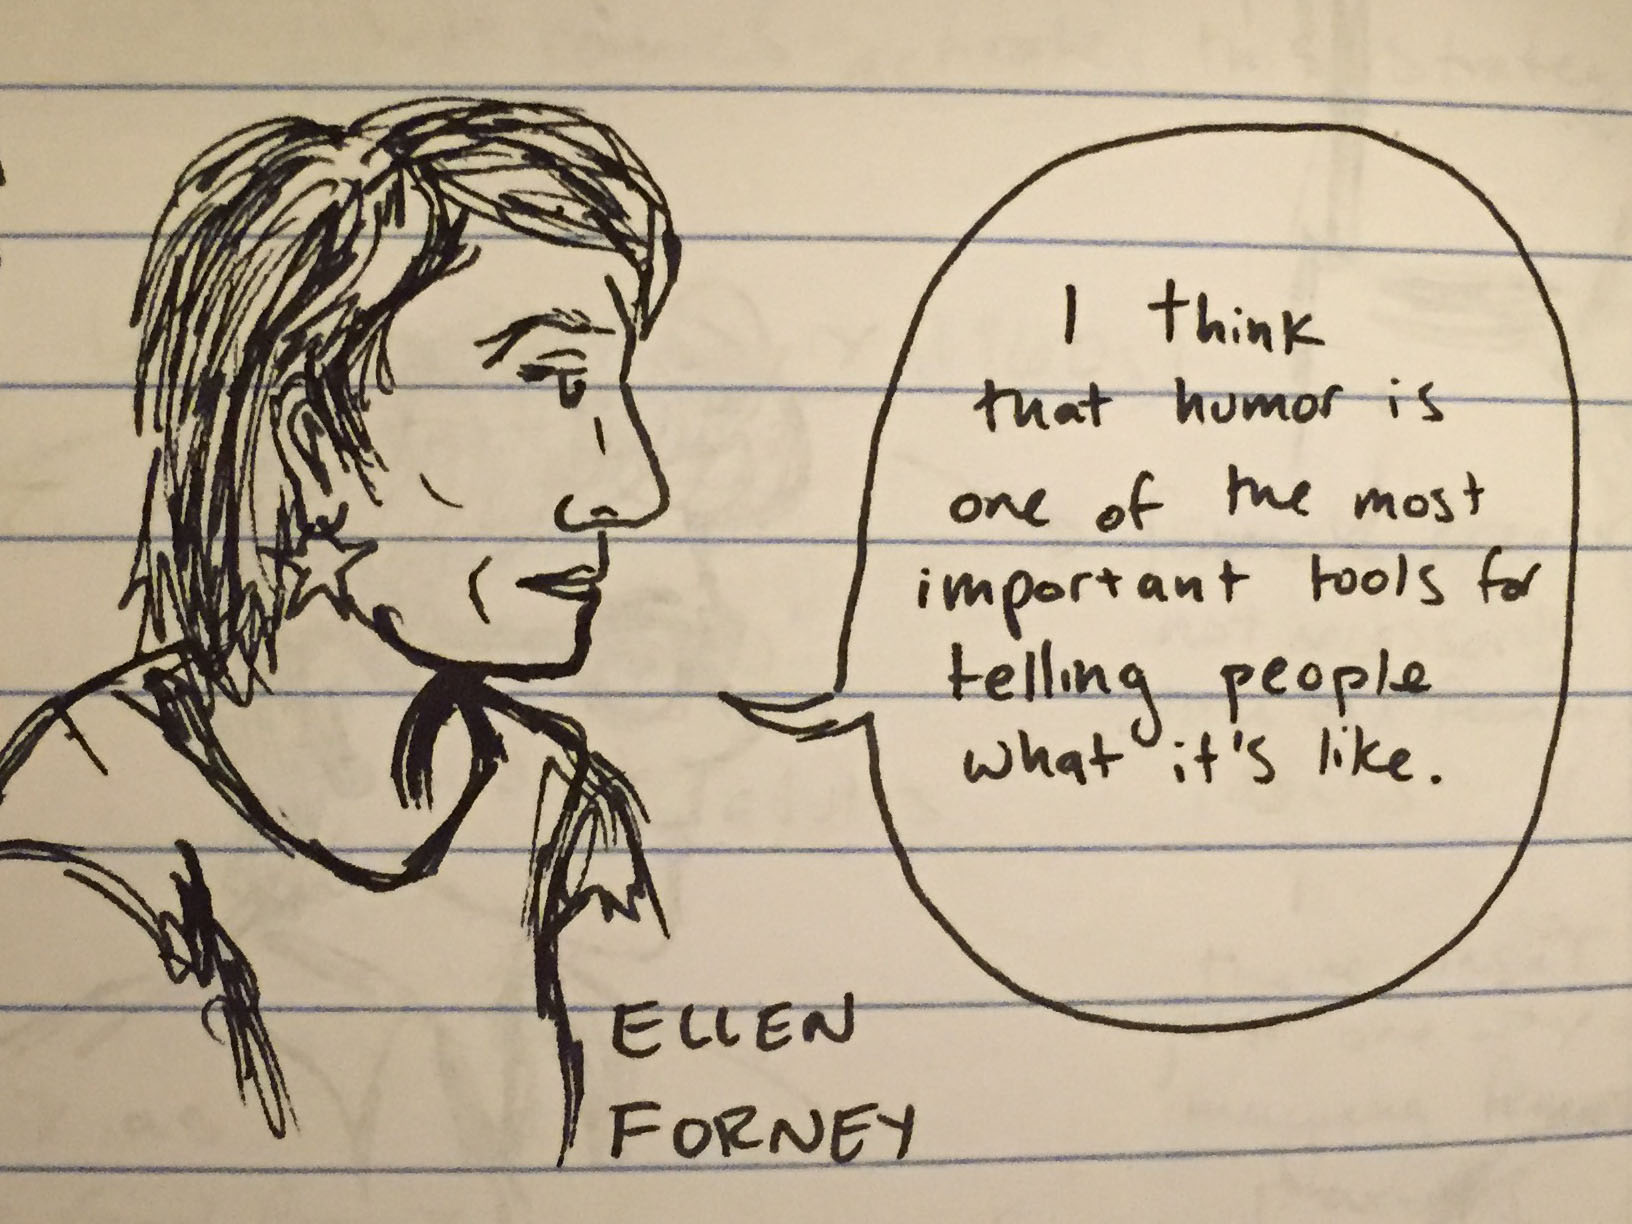 I think
that humor is
one of the most
important tools for
telling people
what it's like.
ELLEN
FORNEY